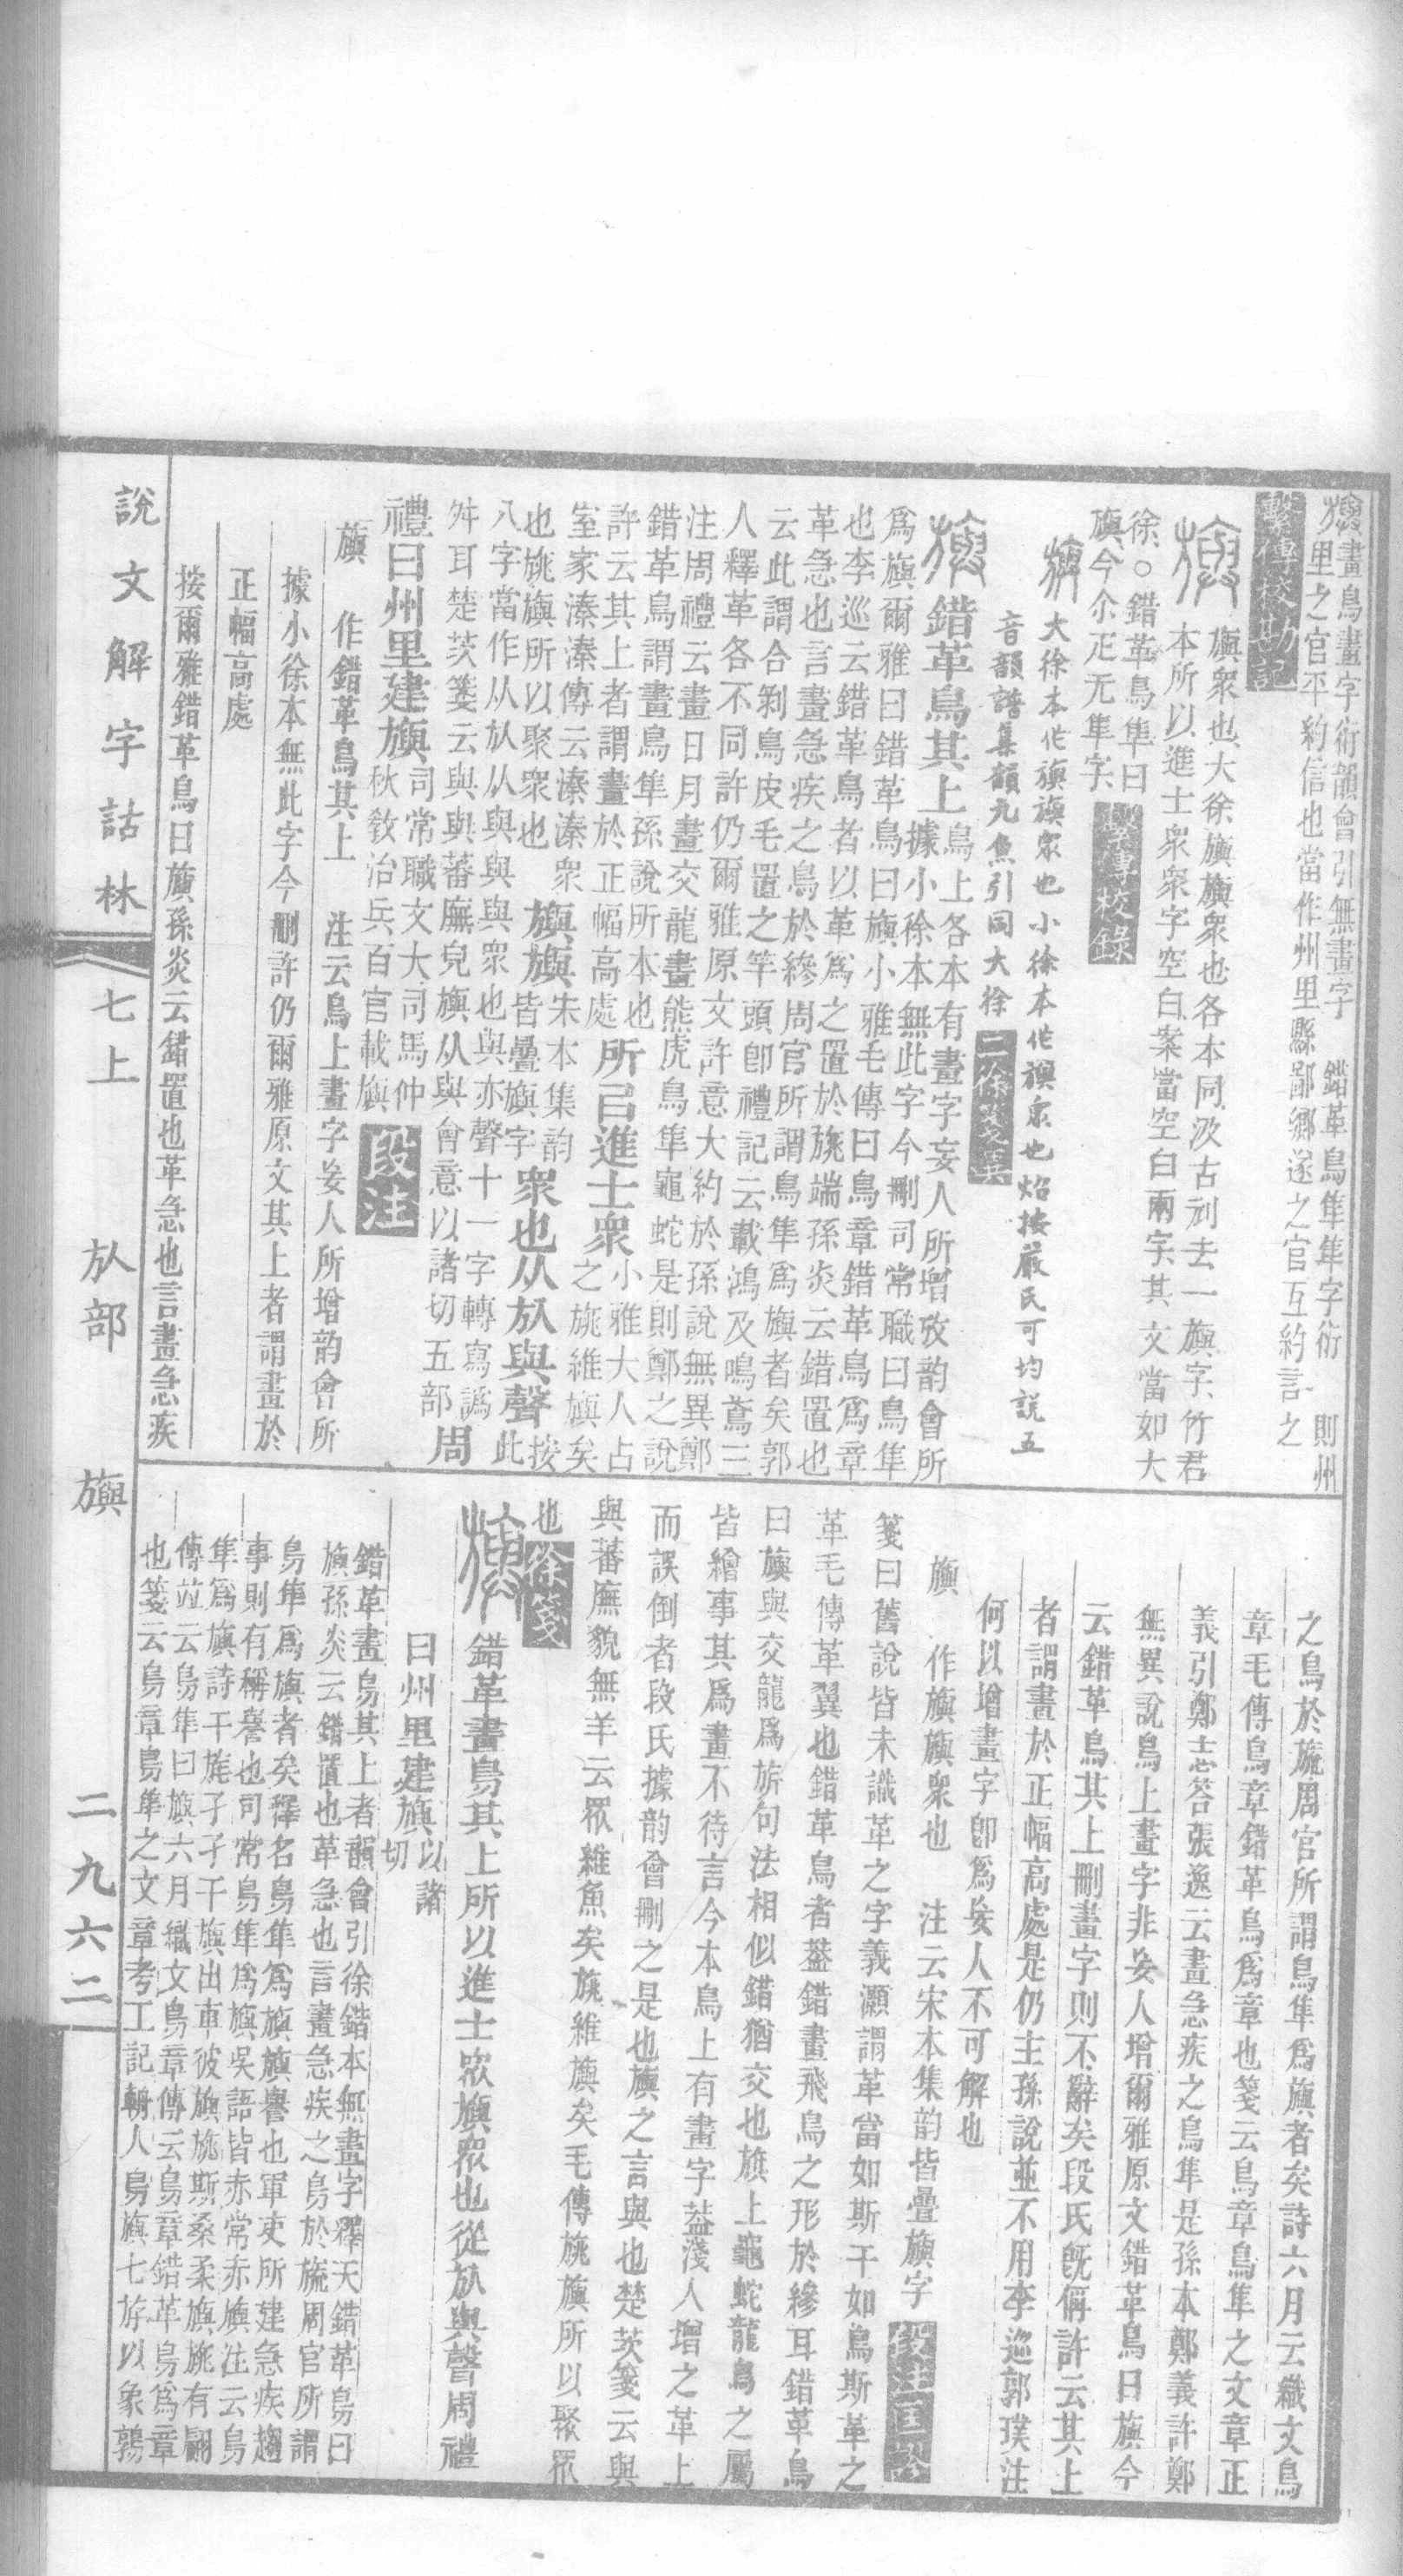 旟畫鳥畫字衍韻會引無畫字　錯革鳥隼隼字衍　則州
里之官平約信也當作州里縣鄙鄉遂之官互約言之
繫傳校勘記
旟　旟衆也大徐旟旟衆也各本同汲古刓去一旟字竹君
本所以進士衆衆字空白案當空白兩字其文當如大
徐○錯革鳥隼曰
旟今尒疋无隼字　繫傳校錄
旟　大徐本作旟旟衆也小徐本作旟衆也炤按嚴氏可均說五
音韻譜集韻九魚引同大徐　二徐箋異
旟　錯革鳥其上鳥上各本有畫字妄人所增攷韵會所
據小徐本無此字今刪司常職曰鳥隼
爲旟爾雅曰錯革鳥曰旟小雅毛傳曰鳥章錯革鳥爲章
也李巡云錯革鳥者以革爲之置於旐端孫炎云錯置也
革急也言畫急疾之鳥於縿周官所謂鳥隼爲旟者矣郭
云此謂合剝鳥皮毛置之竿頭卽禮記云載鴻及鳴鳶三
人釋革各不同許仍爾雅原文許意大約於孫說無異鄭
注周禮云畫日月畫交龍畫熊虎鳥隼龜蛇是則鄭之說
錯革鳥謂畫鳥隼孫說所本也
許云其上者謂畫於正幅高處　所㠯進士衆小雅大人占
室家溱溱傳云溱溱衆　之旐維旟矣
也旐旟所以聚衆也　旟旟朱本集韵
皆疊旟字　衆也从㫃與聲按
此
八字當作从㫃从與與衆也與亦聲十一字轉寫譌
舛耳楚茨箋云與與蕃廡皃旟从與會意以諸切五部　周
禮曰州里建旟司常職文大司馬仲
秋敎治兵百官載旟　段注
旟　作錯革鳥其上　注云鳥上畫字妄人所增韵會所
據小徐本無此字今刪許仍爾雅原文其上者謂畫於
正幅高處
按爾雅錯革鳥曰旟孫炎云錯置也革急也言畫急疾
之鳥於旒周官所謂鳥隼爲旟者矣詩六月云織文鳥
章毛傳鳥章錯革鳥爲章也箋云鳥章鳥隼之文章正
義引鄭志荅張逸云畫急疾之鳥隼是孫本鄭義許鄭
無異說鳥上畫字非妄人增爾雅原文錯革鳥曰旟今
云錯革鳥其上刪畫字則不辭矣段氏旣偁許云其上
者謂畫於正幅高處是仍主孫說並不用李巡郭璞注
何以增畫字卽爲妄人不可解也
旟　作旟旟衆也　注云宋本集韵皆疊旟字　段注匡謬
箋曰舊說皆未識革之字義灝謂革當如斯干如鳥斯革之
革毛傳革翼也錯革鳥者葢錯畫飛鳥之形於縿耳錯革鳥
曰旟與交龍爲旂句法相似錯猶交也旗上龜蛇龍鳥之屬
皆繪事其爲畫不待言今本鳥上有畫字葢淺人增之革上
而誤倒者段氏據韵會刪之是也旟之言與也楚茨箋云與
與蕃廡貌無羊云眾維魚矣旐維旟矣毛傳旐旟所以聚眾
也　徐箋
旟　錯革畫鳥其上所以進士衆旟眾也從㫃與聲周禮
曰州里建旟以諸
切
錯革畫鳥其上者韻會引徐鍇本無畫字釋天錯革鳥曰
旟孫炎云錯置也革急也言畫急疾之鳥於旒周官所謂
鳥隼爲旟者矣釋名鳥隼爲旟旟譽也軍吏所建急疾趨
事則有稱譽也司常鳥隼爲旟吳語皆赤常赤旟注云鳥
隼爲旟詩干旄孑孑干旟出車彼旟旐斯桑柔旟旐有翩
傳竝云鳥隼曰旟六月織文鳥章傳云鳥章錯革鳥爲章
也箋云鳥章鳥隼之文章考工記輈人鳥旟七斿以象鶉
說文解字詁林　七上　㫃部　旟　二九六二